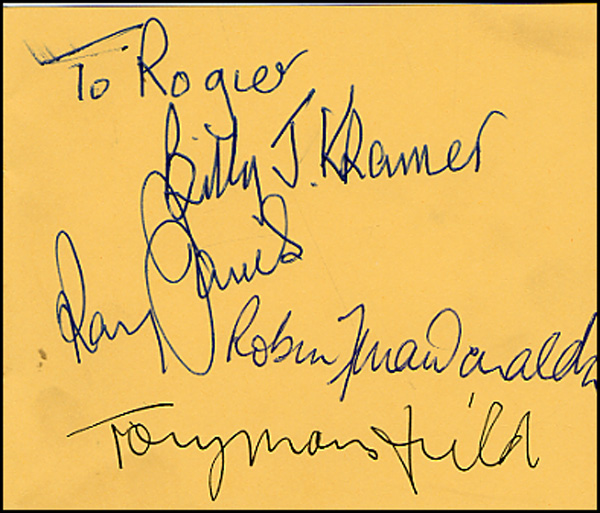 To Rogier
Billy J. Kramer
Ray Jones
Robin MacDonald
Tony Mansfield